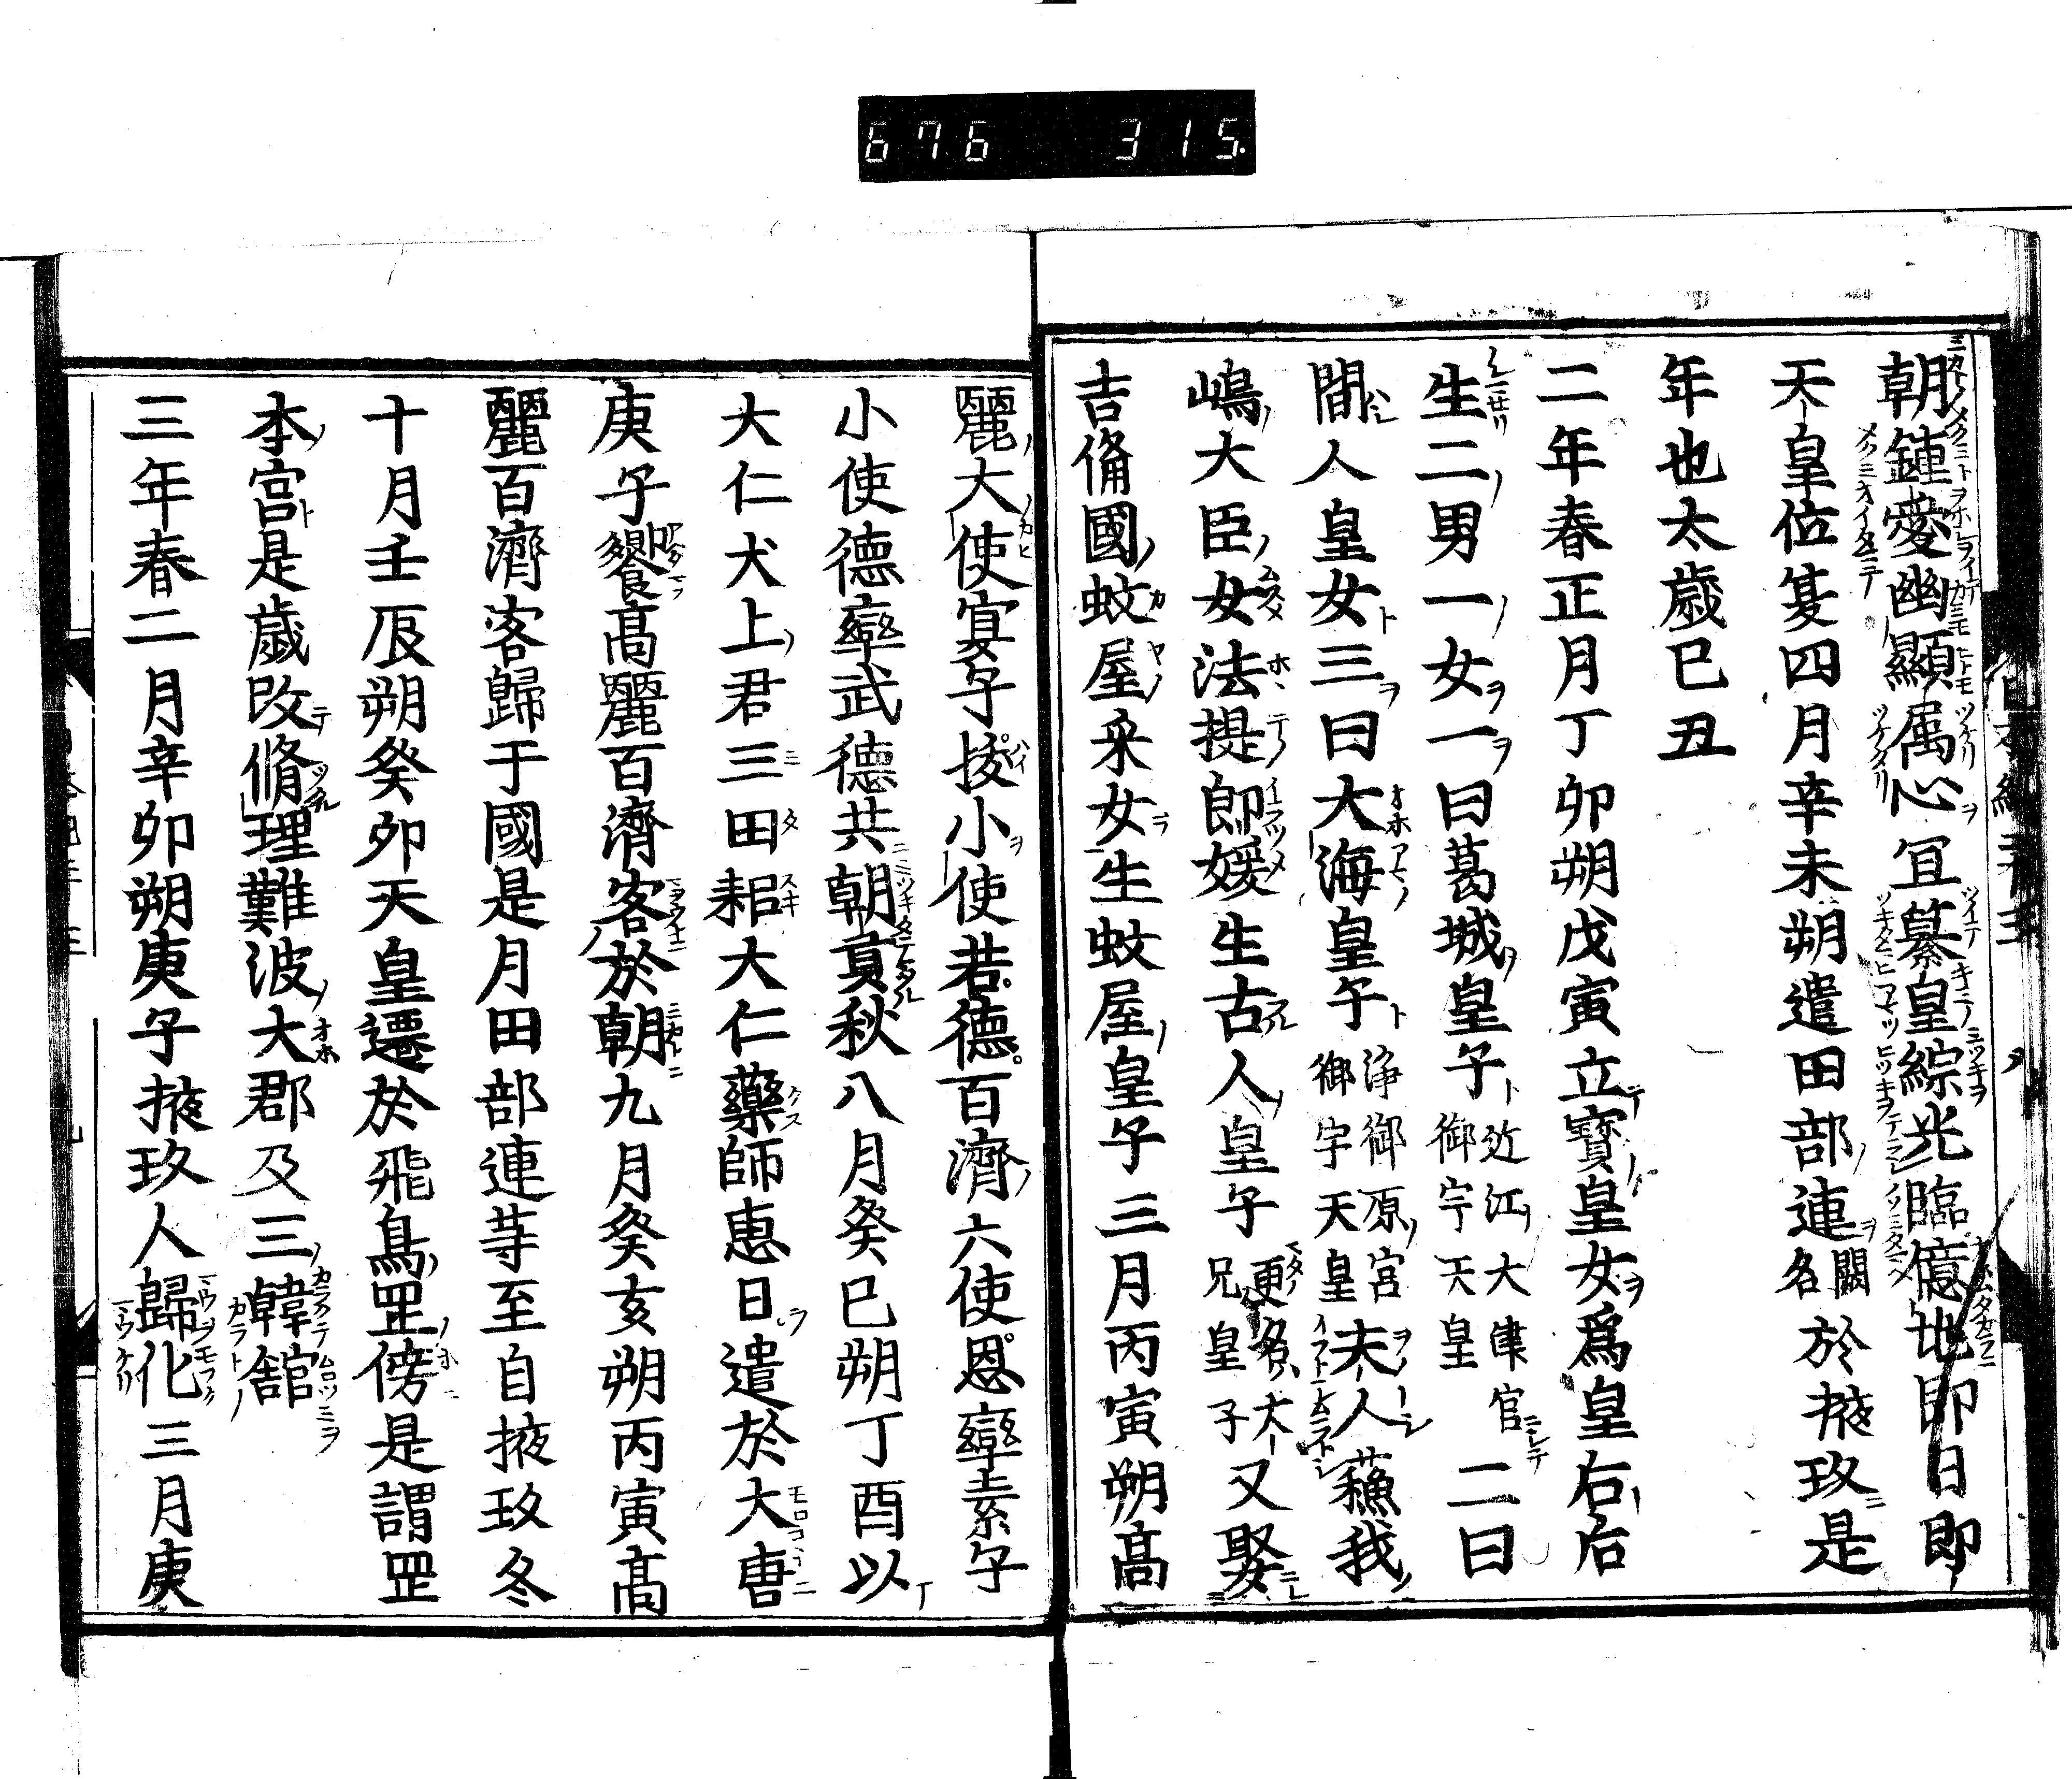 676 315.
朝鍾愛幽顯属心冝纂皇綜光臨億地即日即
天皇位夏四月辛未朔遣田部連闕名於掖玖是
年也太歳已丑
二年春正月丁卯朔戊寅立寳皇女爲皇右后
生二男一女一曰葛城皇子近江大津宮御宇天皇二曰
間人皇女三曰大海皇子浄御原宮御宇天皇夫人蘓我
嶋大臣女法提郎媛生古人皇子更名大兄皇子又娶
吉備國蚊屋采女生蚊屋皇子三月丙寅朔髙
麗大使宴子拔小使若德百濟六使恩率素子
小使德率武德共朝貢秋八月癸巳朔丁酉以
大仁犬上君三田耜大仁藥師惠日遣於大唐
庚子饗髙麗百濟客於朝九月癸亥朔丙寅髙
麗百濟客歸于國是月田部連䓁至自掖玖冬
十月壬辰朔癸卯天皇遷於飛鳥罡傍是謂罡
本宮是歳改脩理難波大郡及三韓舘
三年春二月辛卯朔庚子掖玖人歸化三月庚